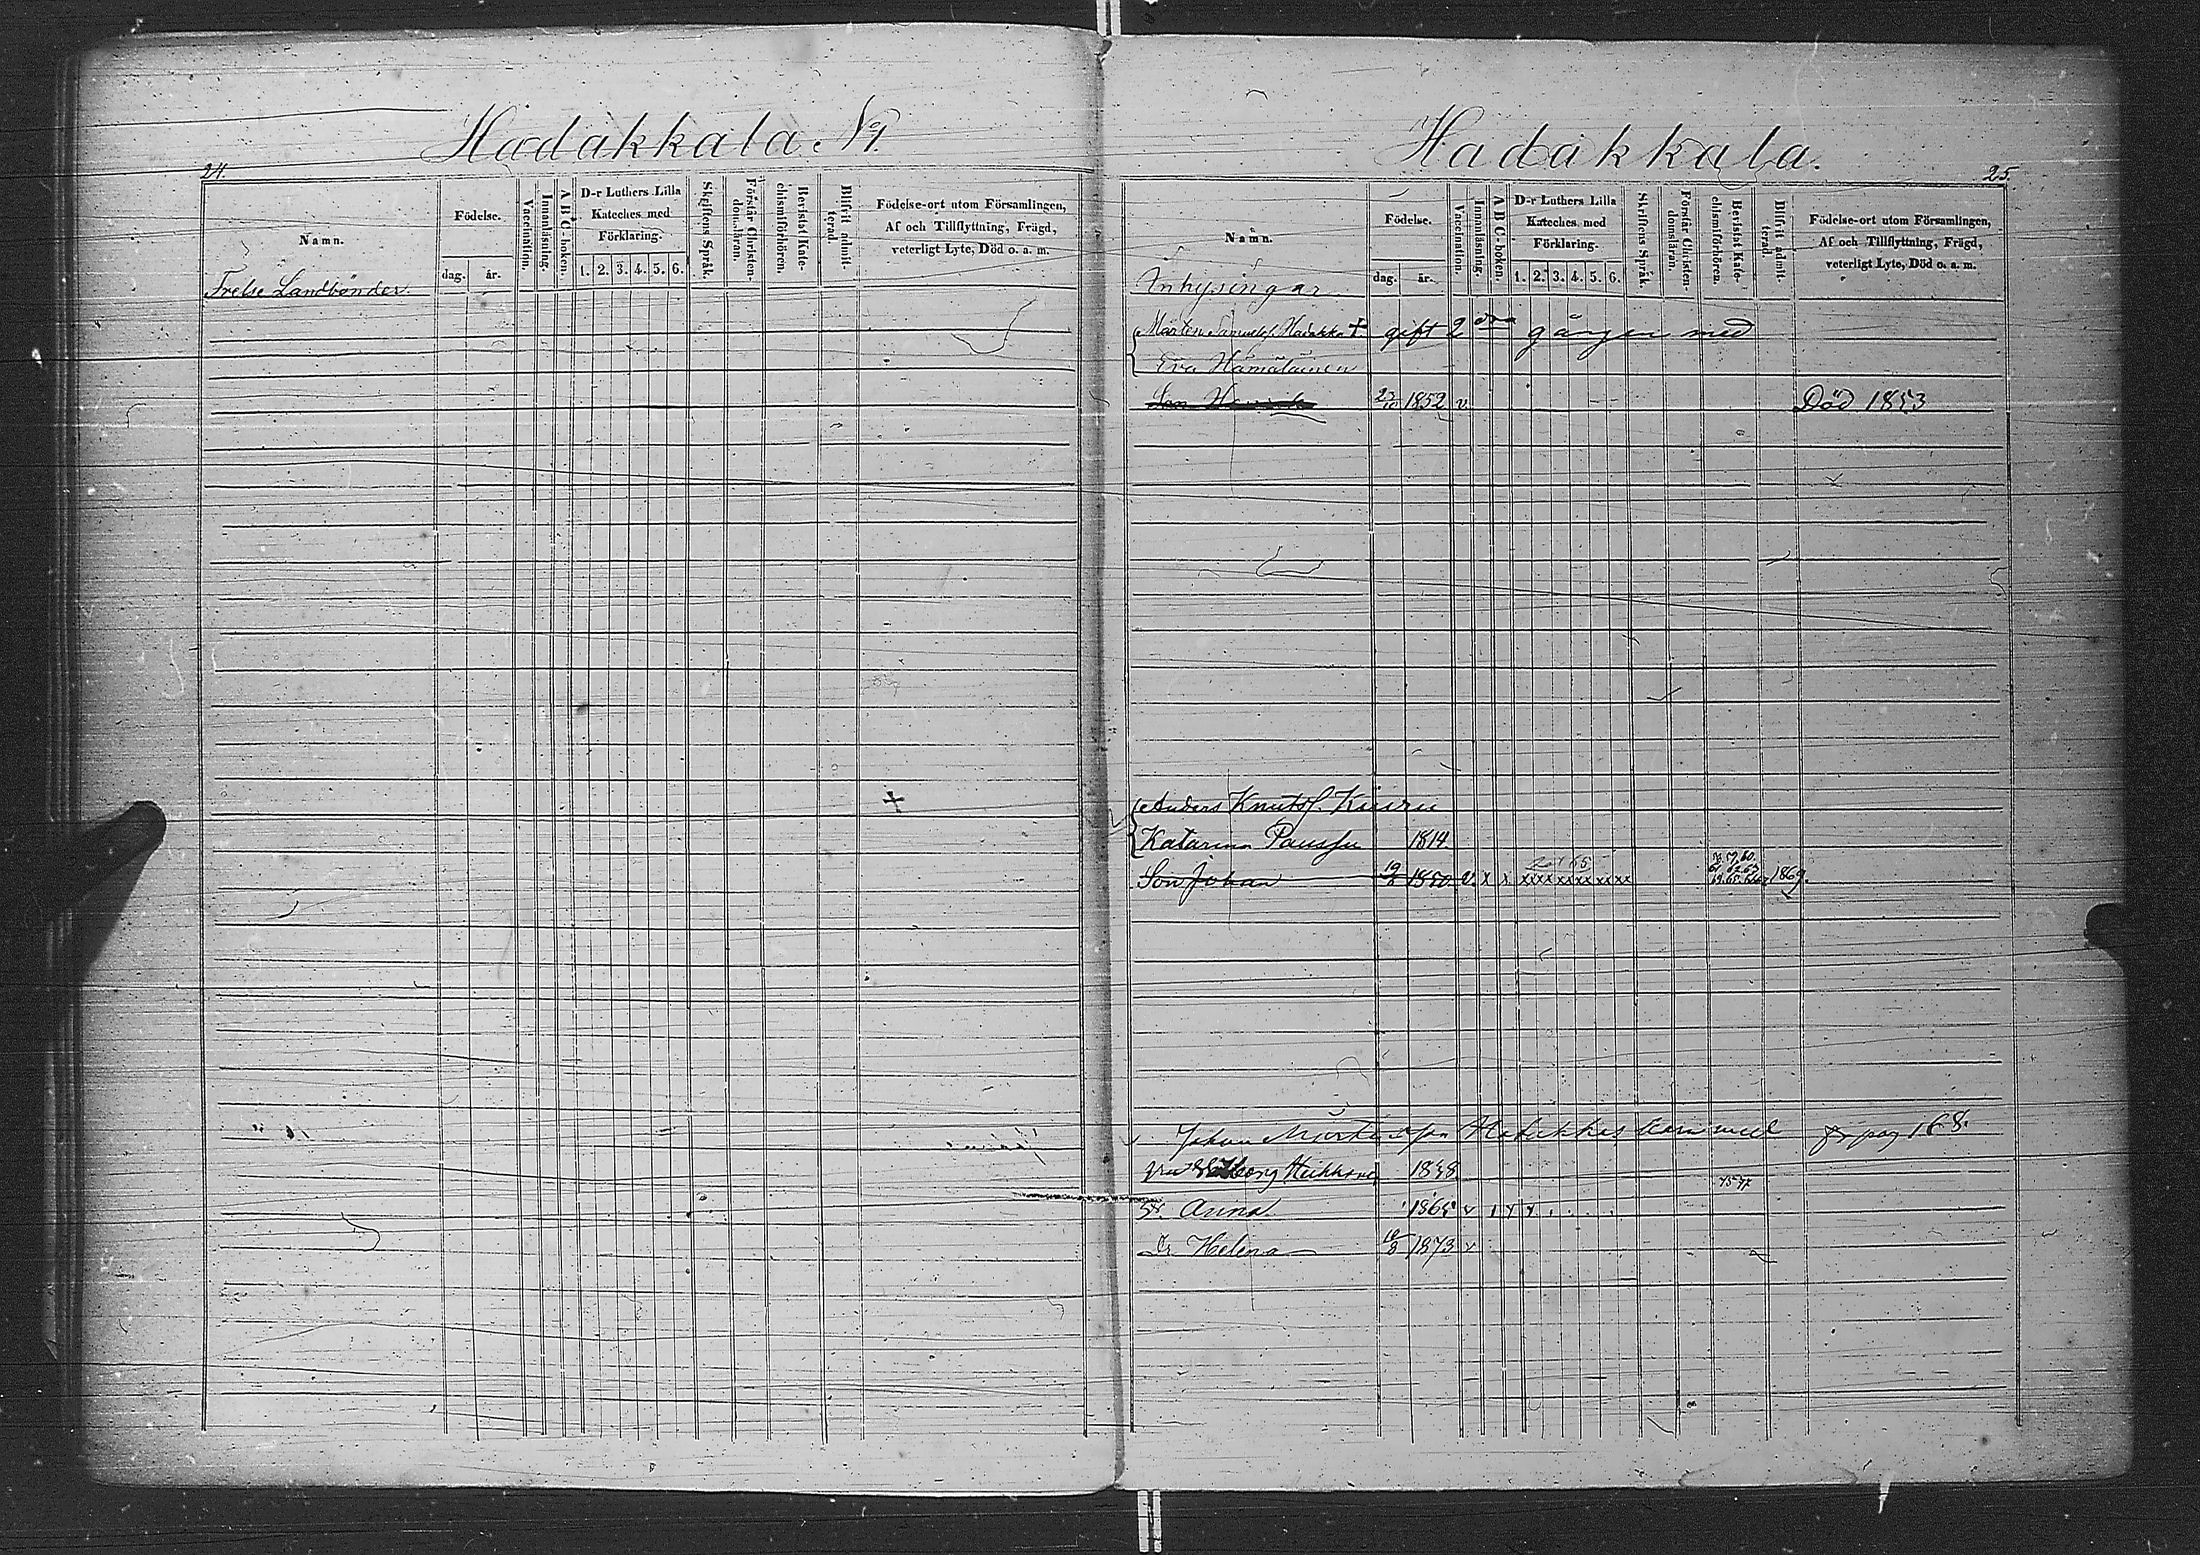 Hadakkala N1
24.
Namn.
Födelse.
dag. år.
Vaccination.
Innanläsning.
A B C-boken.
D-r Luthers Lilla
Kateches med
Förklaring.
1. 2. 3. 4. 5. 6.
Skriftens Språk.
Förstår Christen-
domsläran.
Bevistat Kate-
chismiförhören.
Blifvit admit-
terad.
Födelse-ort utom Församlingen,
Af och Tillflyttning, Frägd,
veterligt Lyte, Död o. a. m.
Frelse Landbönder.
Hadakkala.
25.
Namn.
Födelse.
dag. år.
Vaccination.
Innanläsning.
A B C-boken.
D-r Luthers Lilla
Kateches med
Förklaring.
1. 2. 3. 4. 5. 6.
Skriftens Språk.
Förstår Christen-
domsläran.
Bevistat Kate-
chismiförhören.
Blifvit admit-
terad.
Födelse-ort utom Församlingen,
Af och Tillflyttning, Frägd,
veterligt Lyte, Död o. a. m.
Inhysingar
Mårten Samuelss. Hadakka + gift 2 dra gången med
Eva Hämäläinen
Son 1852 v. Död 1853
Anders Knutss. Kiuru
Katarina Paussu 1814
Son Johan 1850 v. x x. xxxx xxxxx xx 1869.
Johan pag 168.
1838
75 77
Anna 1865 v
Dr Helena 10/8 1873 v